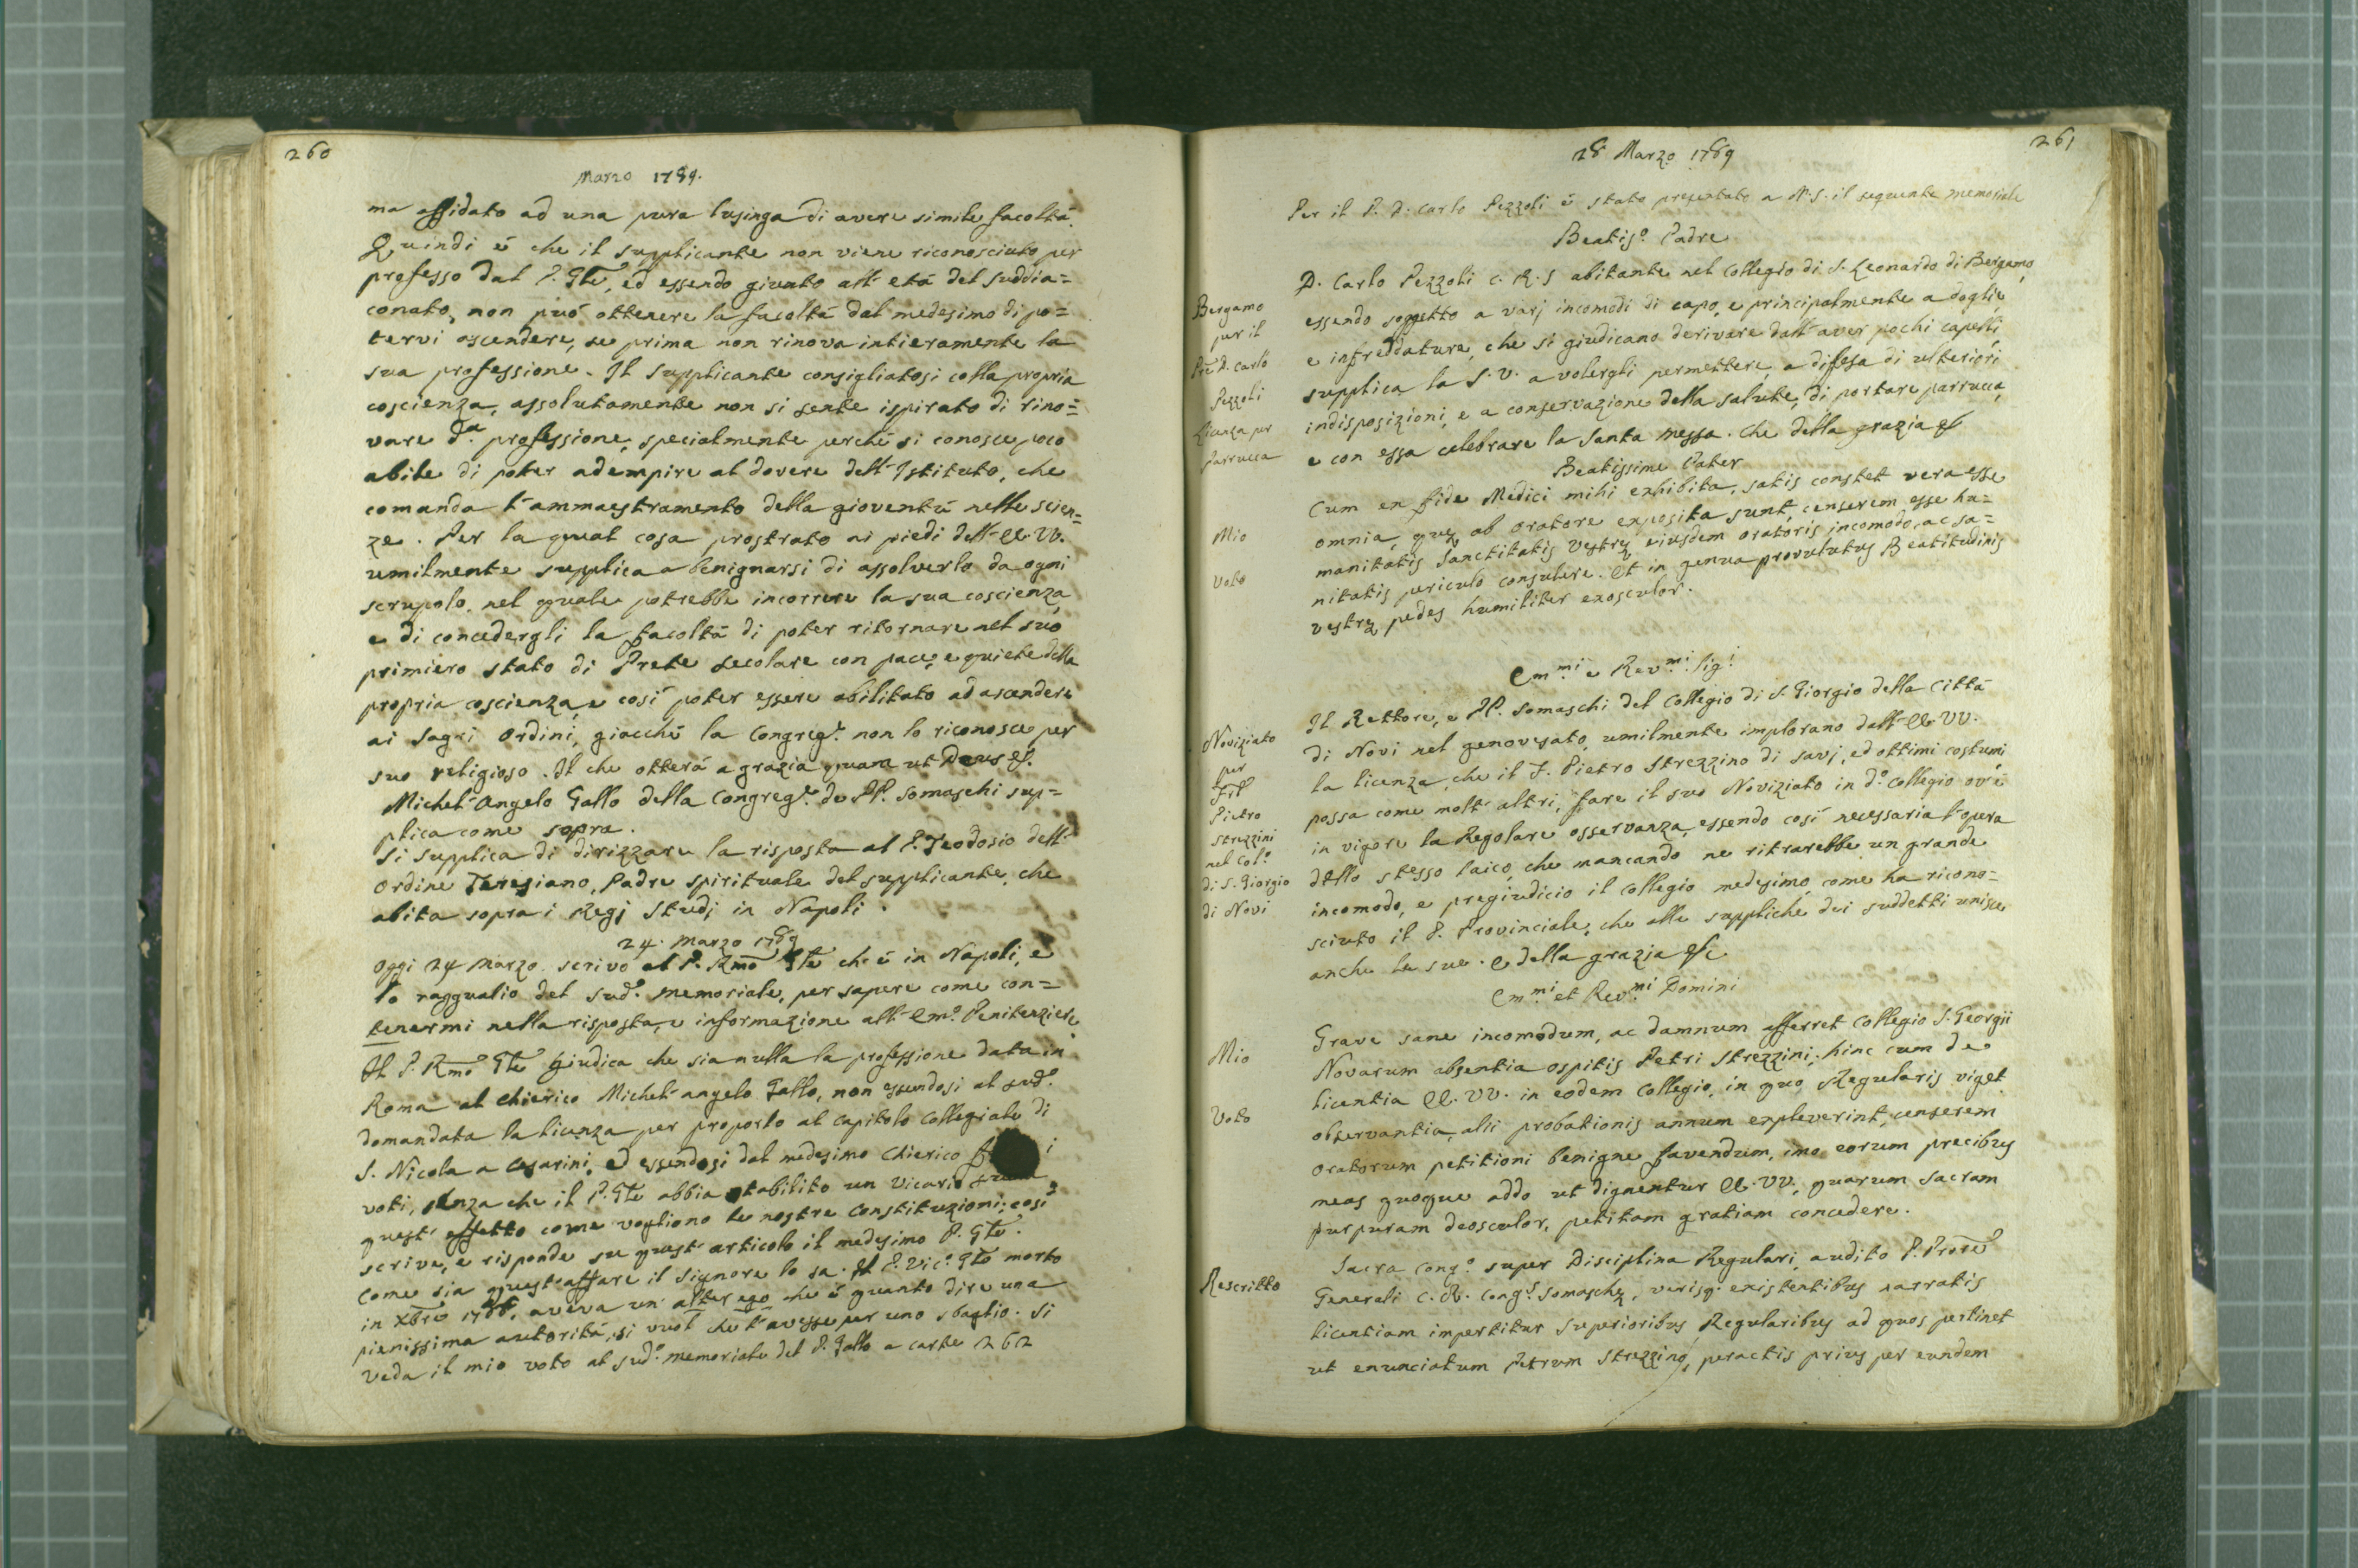 260
Marzo 1789.
ma affidato ad una pura lusinga di avere simile facoltà.
Quindi è che il supplicante non viene riconosciuto per
professo dal P. Gle, ed essendo giunto all'età del suddia=
conato, non può ottenere la facoltà dal medesimo di po=
tervi ascendere, se prima non rinova intieramente la
sua professione. Il supplicante consigliatosi colla propria
coscienza, assolutamente non si sente ispirato di rino=
vare d.a professione, specialmente perchè si conosce poco
abile di poter adempire al dovere dell'Istituto, che
comanda l'ammaestramento della gioventù nelle scien=
ze. Per la qual cosa prostrato ai piedi dell'EE. VV.
umilmente supplica a benignarsi di assolverlo da ogni
scrupolo, nel quale potrebbe incorrere la sua coscienza,
e di concedergli la facoltà di poter ritornare nel suo
primiero stato di Prete secolare con pace, e quiete della
propria coscienza, e così poter essere abilitato ad ascendere
ai sagri Ordini, giacchè la Congreg.e non lo riconosce per
suo religioso. Il che otterrà a grazia quam ut Deus &.
Michel'Angelo Gallo della Congreg.e de PP. Somaschi sup=
plica come sopra.
Si supplica di dirizzare la risposta al P. Teodosio dell'
Ordine Teresiano, Padre spirituale del supplicante, che
abita sopra i Regj Studj in Napoli.
24. Marzo 1789
Oggi 24 Marzo scrivo al P. Rmo Gle che è in Napoli, e
lo ragguaglio del sud.o memoriale, per sapere come con=
tenermi nella risposta, e informazione all'Em.o Penitenziere
Il P. Rmo Gle giudica che sia nulla la professione data in
Roma al Chierico Michel'angelo Gallo, non essendosi al sud.o
domandata la licenza per proporlo al capitolo Collegiale di
S. Nicola a Cesarini, ed essendosi dal medesimo Chierico i
voti, senza che il P. Gle abbia stabilito un Vicario
quest'effetto come vogliono le nostre Constituzioni; così
scrive, e risponde su quest'articolo il medesimo P. Gle.
Come sia quest'affare il Signore lo sa. Il P. Vic.o Gle morto
in Xbre 1788, aveva un alter ego che è quanto dire una
pienissima autorità, si vuol che l'avesse per uno sbaglio. Si
veda il mio voto al sud.o memoriale del P. Gallo a carte 262
261
28 Marzo 1789
Per il P. D. Carlo Pezzoli è stato presentato a N.S. il seguente memoriale
Beatis.o Padre
D. Carlo Pezzoli C. R. S abitante nel Collegio di S. Leonardo di Bergamo,
essendo soggetto a varj incomodi di capo, e principalmente a doglie,
e infreddature, che si giudicano derivare dall'aver pochi capelli,
supplica la S. V. a volergli permettere, a difesa di ulteriori
indisposizioni, e a conservazione della salute, di portare parrucca,
e con essa celebrare la Santa Messa. Che della grazia &
Bergamo
per il
Pre D. Carlo
Pezzoli
Licenza per
Parrucca
Beatissime Pater
Cum ex fide Medici mihi exhibita, satis constet vera esse
omnia, quę ab oratore exposita sunt, censerem esse hu=
manitatis Sanctitatis Vestrę eiusdem oratoris incomodo, ac sa=
nitatis periculo consulere. Et in genua provolutus Beatitudinis
vestrę pedes humiliter exosculor.
Mio
Voto
Em.mi e Rev.mi Sig.i
Il Rettore, e PP. Somaschi del Collegio di S. Giorgio della Città
di Novi nel genovesato, umilmente implorano dall'EE. VV.
la licenza, che il F. Pietro Strezzino di savj, ed ottimi costumi,
possa come molt'altri, fare il suo Noviziato in d.o Collegio ov'è
in vigore la Regolare osservanza, essendo così necessaria l'opera
dello stesso laico, che mancando ne ritrarebbe un grande
incomodo, e pregiudicio il Collegio medesimo, come ha ricono=
sciuto il P. Provinciale, che alle suppliche dei suddetti unisce
anche le sue. E della grazia &c
Noviziato
per
Pietro
Strezzini
nel Col.o
di S. Giorgio
di Novi
Em.mi et Rev.mi Domini
Grave sane incomodum, ac damnum afferret Collegio S. Georgii
Novarum absentia ospitis Petri Strezzini; hinc cum de
licentia EE. VV. in eodem Collegio, in quo Regularis viget
observantia, alii probationis annum expleverint, censerem
Oratorum petitioni benigne favendum, imo eorum precibus
meas quoque addo ut dignentur EE. VV, quarum sacram
purpuram deosculor, petitam gratiam concedere.
Mio
Voto
Sacra Cong.o super Disciplina Regulari, audito P. Prore
Generali C. R. Cong.s Somaschę, verisq. existentibus narratis
licentiam impertitur Superioribus Regularibus ad quos pertinet
ut enunciatum Petrum Strezzino, peractis prius per eundem
Rescritto